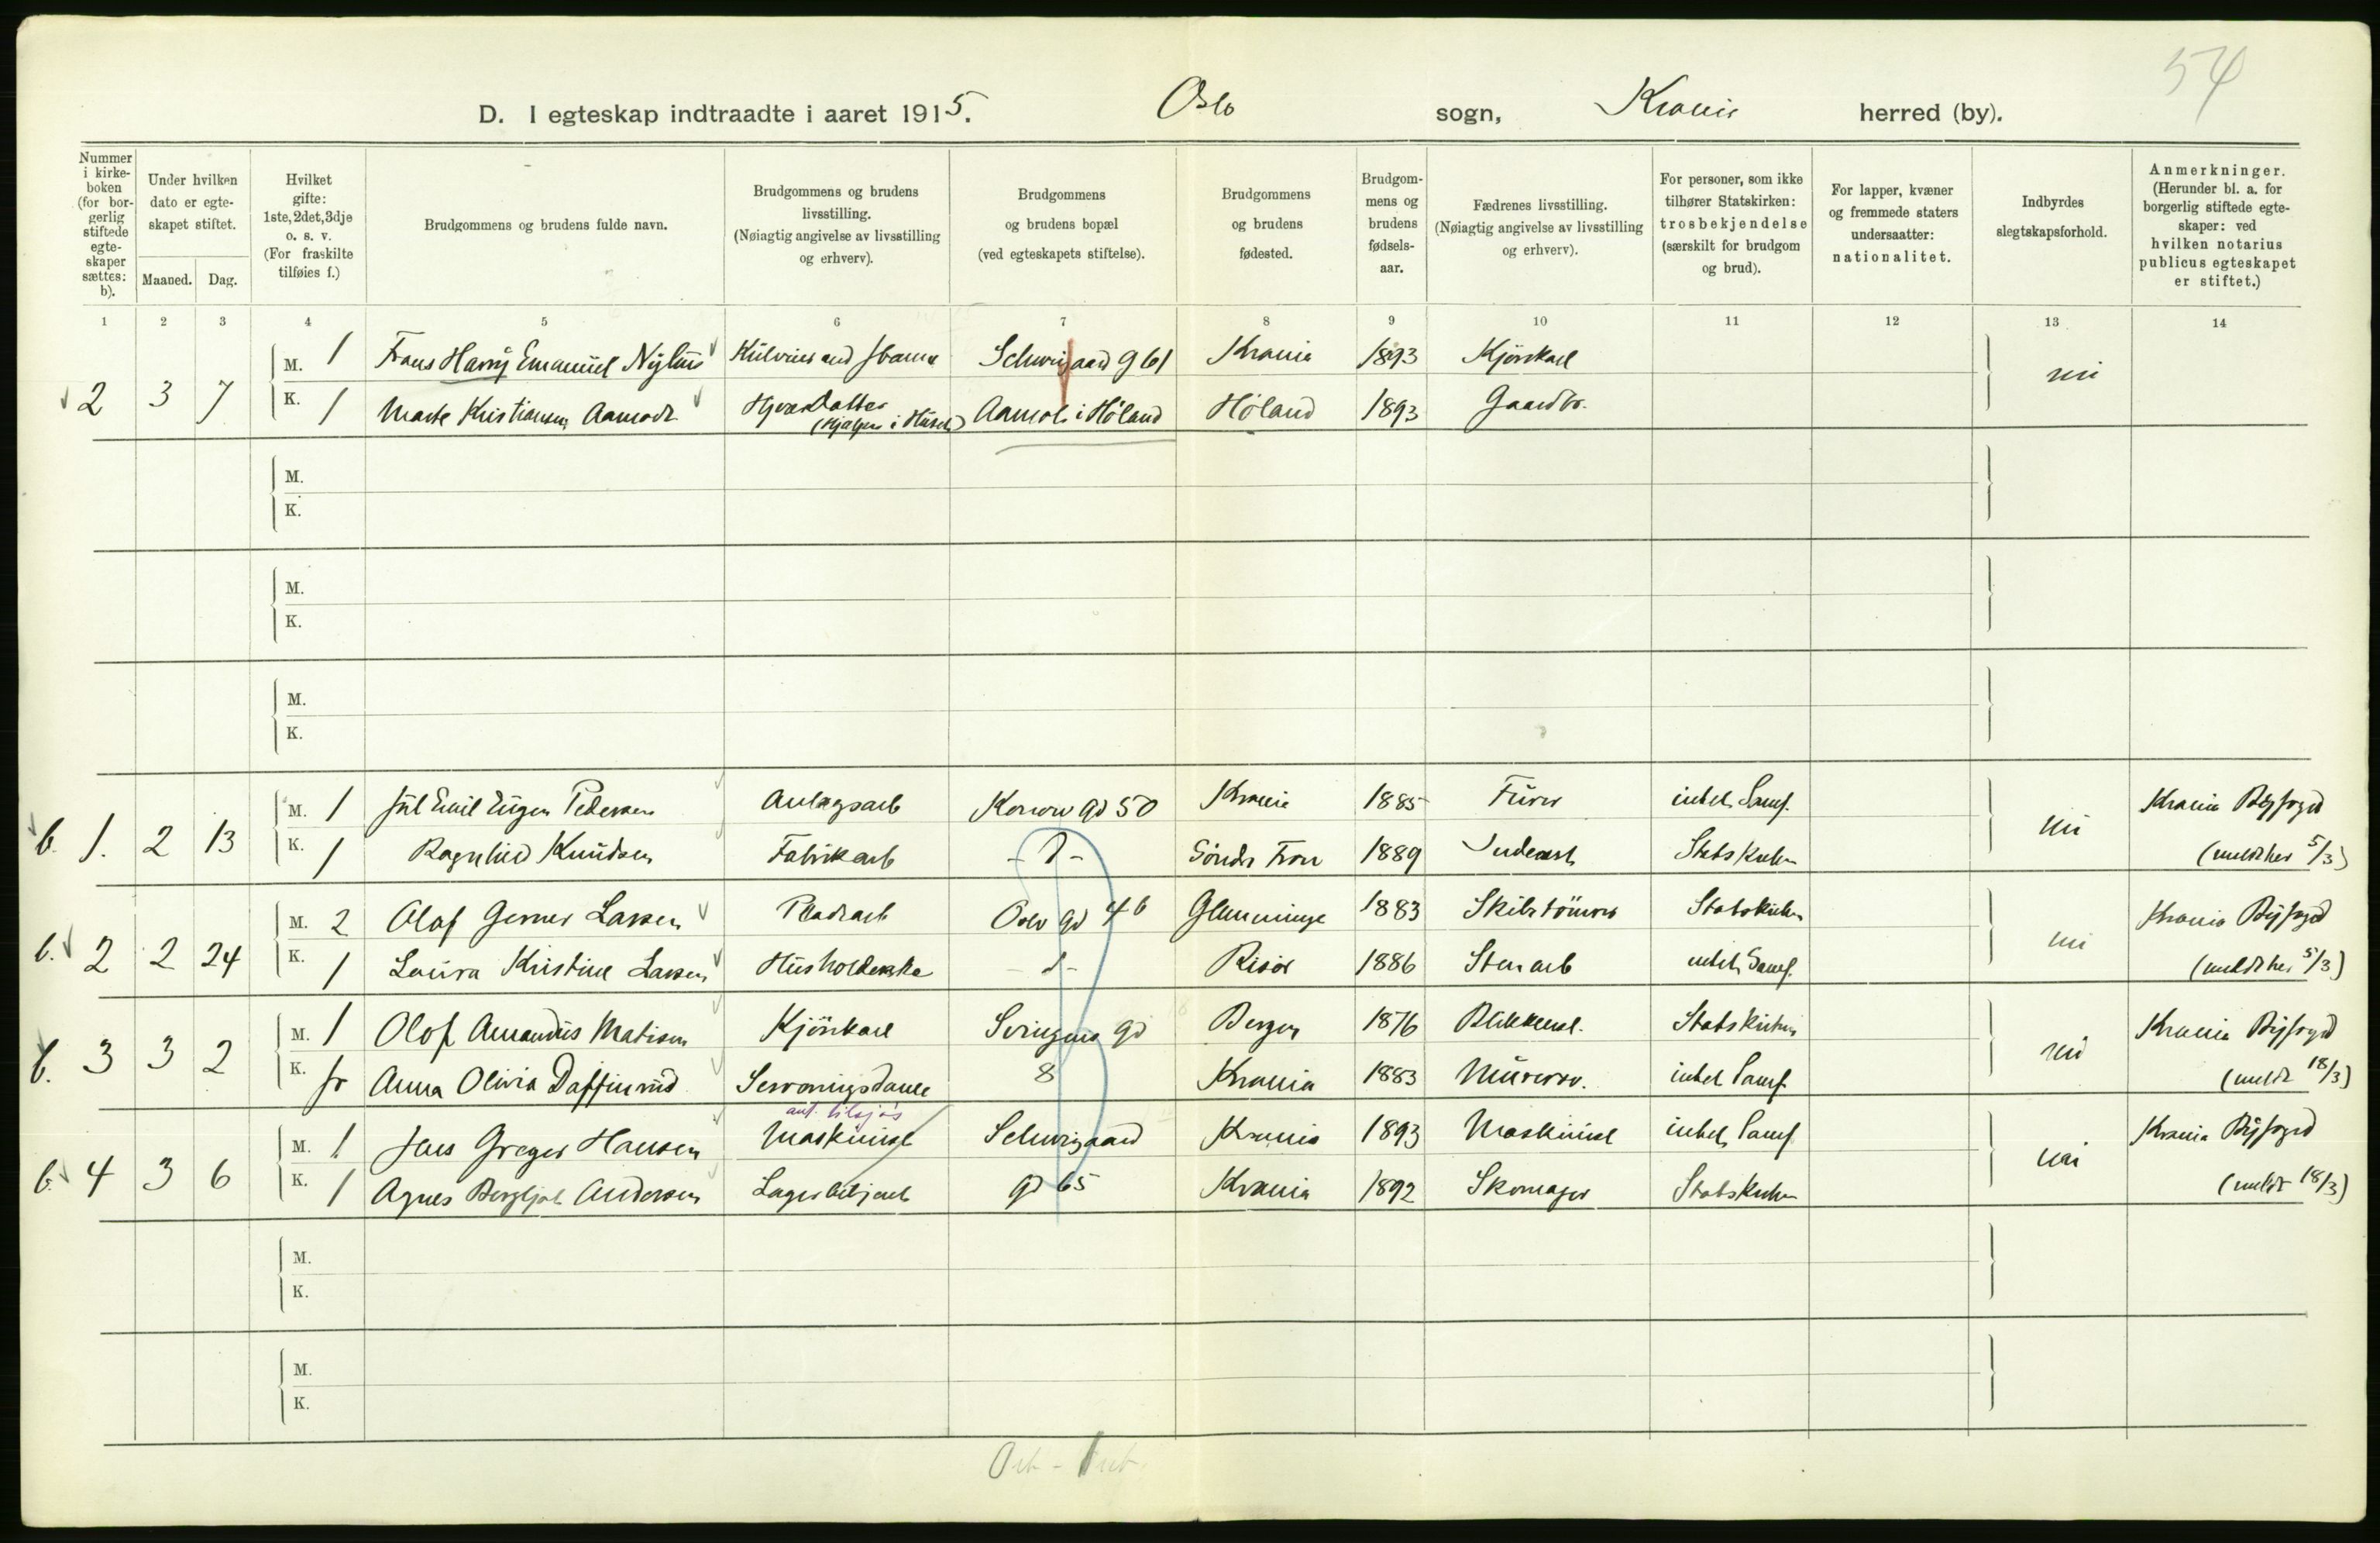 54
D. I egteskap indtraadte i aaret 1915. Oslo sogn, Krania herred (by).
Nummer i kirke-boken (for bor-gerlig stiftede egte-skaper sættes: b).
Under hvilken dato er egte-skapet stiftet.
Maaned. Dag.
Hvilket gifte: 1ste, 2det, 3dje o. s. v. (For fraskilte tilføies f.)
Brudgommens og brudens fulde navn.
Brudgommens og brudens livsstilling. (Nøiagtig angivelse av livsstilling og erhverv).
Brudgommens og brudens bopæl (ved egteskapets stiftelse).
Brudgommens og brudens fødested.
Brudgom-mens og brudens fødsels-aar.
Fædrenes livsstilling. (Nøiagtig angivelse av livsstilling og erhverv).
For personer, som ikke tilhører Statskirken: trosbekjendelse (særskilt for brudgom og brud).
For lapper, kvæner og fremmede staters undersaatter: nationalitet.
Indbyrdes slegtskapsforhold.
Anmerkninger. (Herunder bl. a. for borgerlig stiftede egte-skaper: ved hvilken notarius publicus egteskapet er stiftet.)
1 2 3 4 5 6 7 8 9 10 11 12 13 14
2 3 7 M. 1 Frans Harry Emanuel Schweigaard g 61 Krania 1893 Kjørekarl nei
K. 1 Marte Kristiansen Aamodt (Hjælper i Huset) Aamodt i Høland Høland 1893 Gaardbr.
M.
K.
M.
K.
M.
K.
b. 1. 2 13 M. 1 Jul Emil Eugen Pedersen Anlægsarb Konow gd 50 Krania 1885 Furer indel Samf. nei Krania Byfoged
K. 1 Ragnhild Knudsen Fabrikarb - d - Söndr Fron 1889 Statskirken (meldt her 5/3)
b. 2 2 24 M. 2 Olaf Gerner Larsen Pladsarb Oslo gd 46 Glemminge 1883 Skibstömrer Statskirken nei Krania Byfoged
K. 1 Laura Kristine Larsen Husholderske - d - Risör 1886 Stenarb indel Samf. (meldt her 5/3)
b. 3 3 2 M. 1 Olof Amandus Matisen Kjörekarl Svingens gd Bergen 1876 Blikkensl. Statskirken nei Krania Byfoged
K. fr Anna Olivia Daffinrud Serveringsdame 8 Krania 1883 Murersv. indel Samf. (meldt 18/3)
ant. tilsjøs
b. 4 3 6 M. 1 Jens Greger Hansen Maskinist Schweigaard Krania 1893 Maskinist indel Samf nei Krania Byfoged
K. 1 Agnes Bergljot Andersen Lagerbetjent gd 65 Krania 1892 Skomager Statskirken (meldt 18/3)
M.
K.
M.
K.